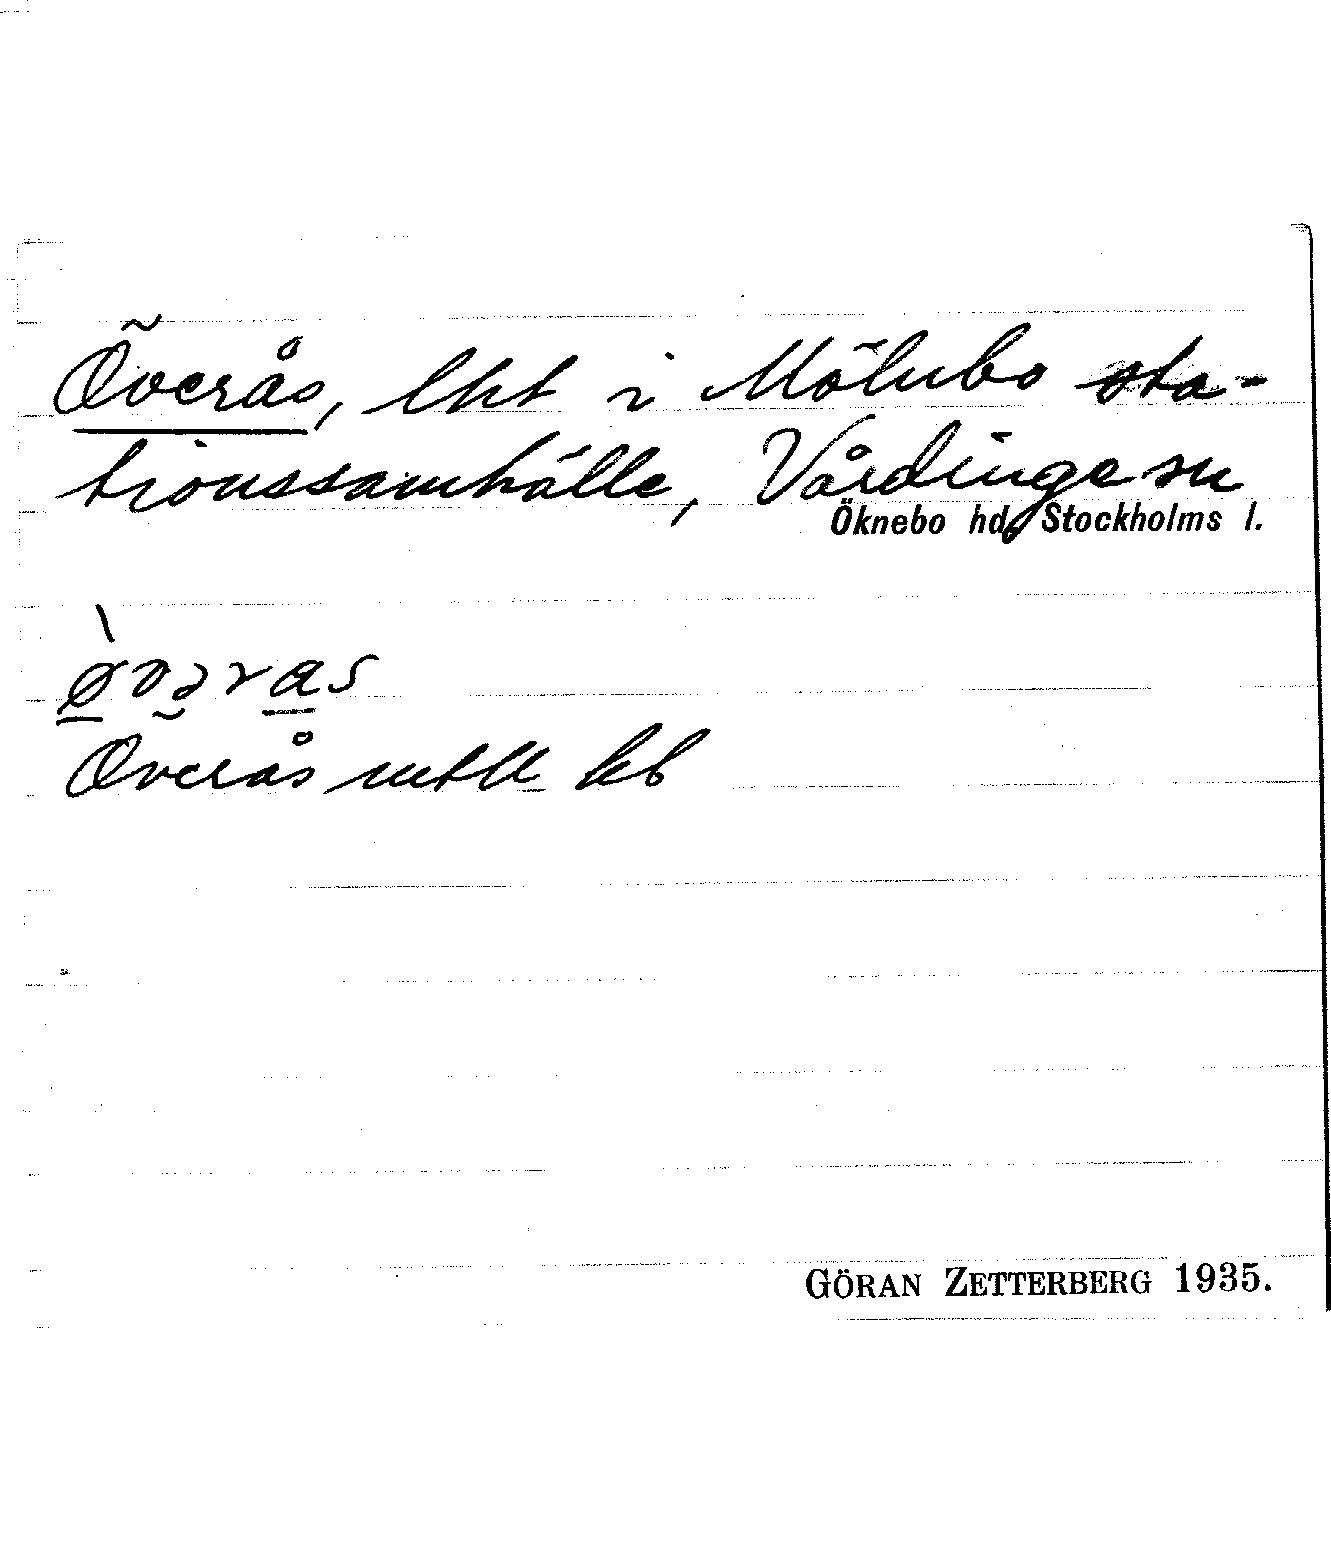 Överås, lht i Mölnbo sta-
tionssamhälle, Vårdinge sn
Öknebo hd, Stockholms l.
Överås mtll kb
GÖRAN ZETTERBERG 1935.